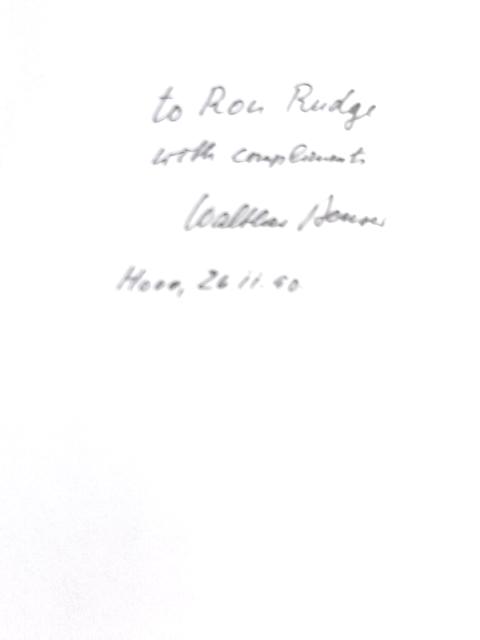 to Ron Rudge
with compliments
Walther
26.11.90